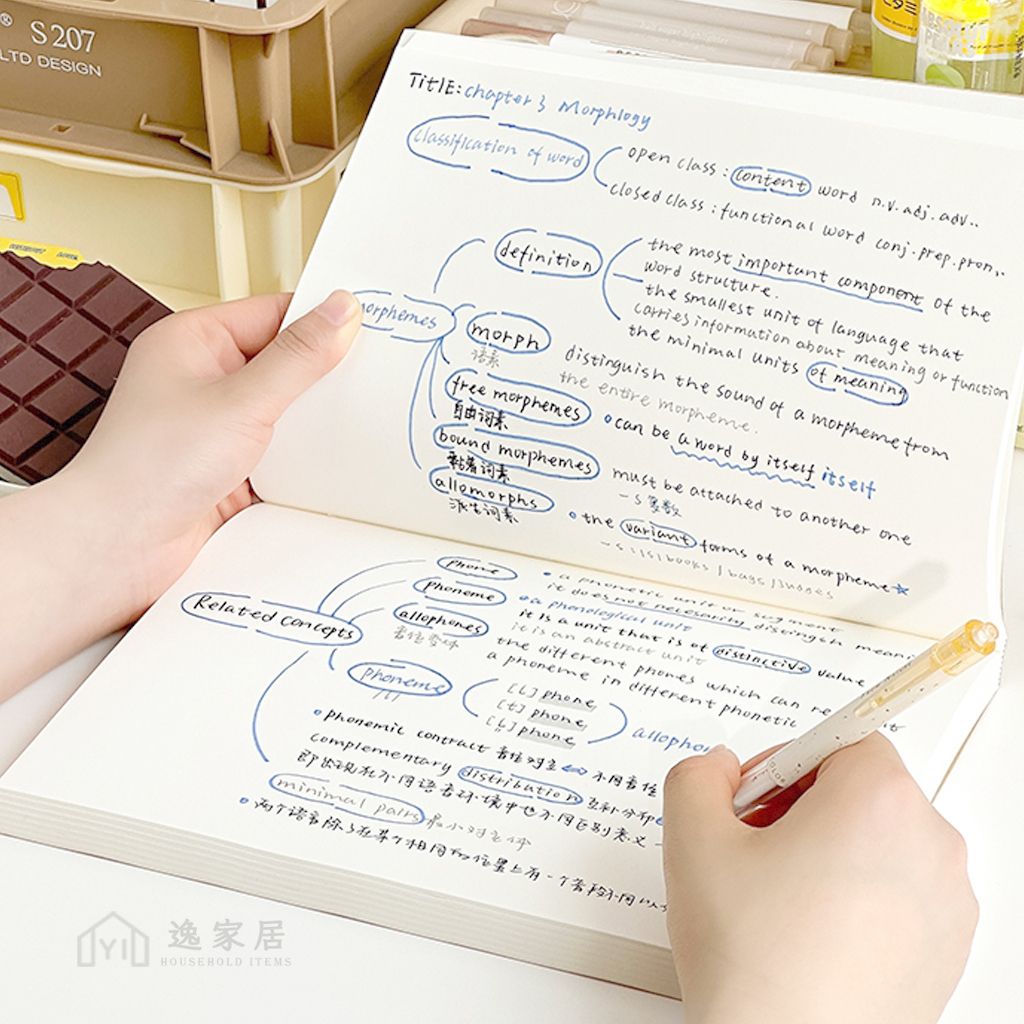 ® S 207
LTD DESIGN
TitlE: chapter 3 Morphlogy
classification of word
open class : content word n.v.adj.adv..
closed class : functional word conj.prep.pron,.
definition
the most important component of the
word structure.
the smallest unit of language that
carries information about meaning or function
the minimal units of meaning
morphemes
morph
语素
distinguish the sound of a morpheme from
the entire morpheme.
free morphemes
自由词素
can be a word by itself itself
bound morphemes
黏着词素
must be attached to another one
-s 复数
allomorphs
派生词素
the variant forms of a morpheme
-s : books / bags /
Related concepts
phone
a phonetic unit or segment
it does not necessarily distingsh meani
phoneme
a phonological unit
it is a unit that is of distinctive value
it is an abstract unit
allophones
音位变体
the different phones which can re
a phoneme in different phonetic
phoneme
phone
[t] phone
phone
allopho
phonemic contract 音位对立 不同音位
complementary distribution 互补分布
即出现在不同语音环境中也不同区别意义
minimal pairs 最小对立体
两个语音除了在某个相同的位置上有一个音段不同以外
YI
逸家居
HOUSEHOLD ITEMS